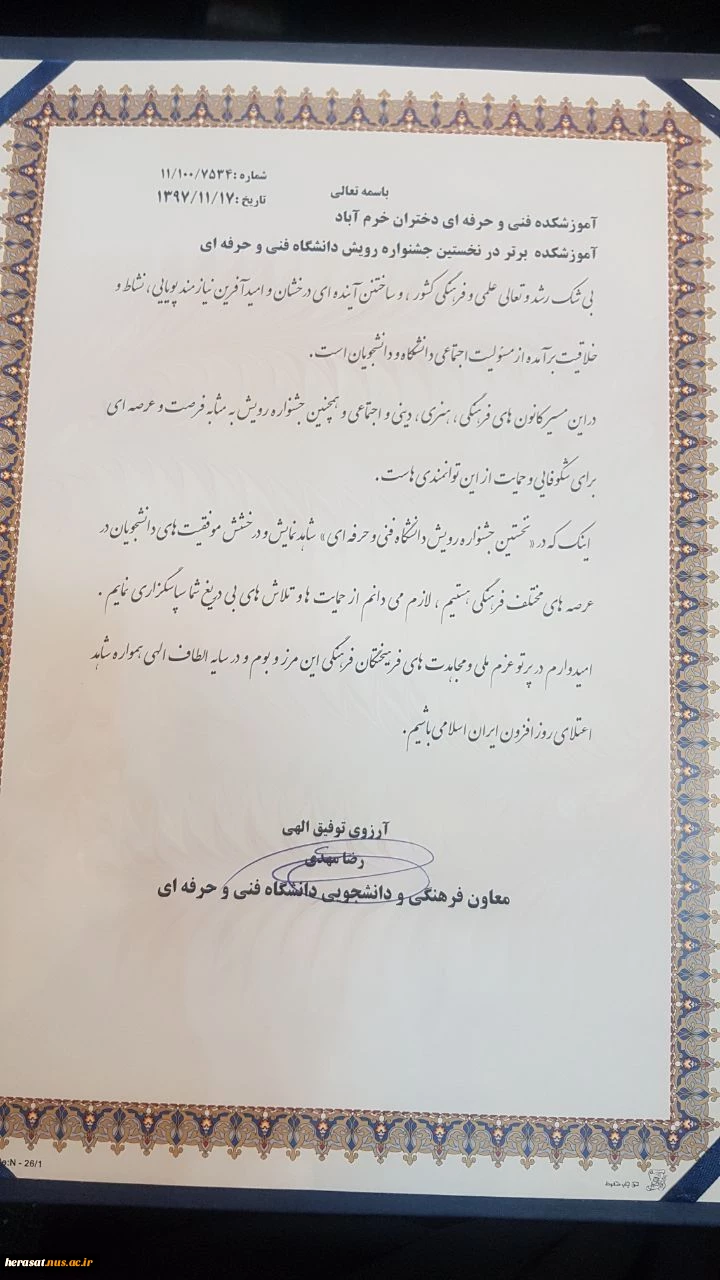 باسمه تعالی
شماره :۱۱/۱۰۰/۷۵۳۴
تاریخ :۱۳۹۷/۱۱/۱۷
آموزشکده فنی و حرفه ای دختران خرم آباد
آموزشکده برتر در نخستین جشنواره رویش دانشگاه فنی و حرفه ای
بی شک رشد و تعالی علمی و فرهنگی کشور ، و ساختن آینده ای درخشان و امیدآفرین نیازمند پویایی، نشاط و
خلاقیت برآمده از مسئولیت اجتماعی دانشگاه و دانشجویان است.
در این مسیر کانون های فرهنگی ، هنری، دینی و اجتماعی و همچنین جشنواره رویش به مثابه فرصت و عرصه ای
برای شکوفایی و حمایت از این توانمندی هاست.
اینک که در «نخستین جشنواره رویش دانشگاه فنی و حرفه ای» شاهد نمایش و درخشش موفقیت های دانشجویان در
عرصه های مختلف فرهنگی هستیم ، لازم می دانم از حمایت ها و تلاش های بی دریغ شما سپاسگزاری نمایم .
امیدوارم در پرتو عزم ملی و مجاهدت های فرهیختگان فرهنگی این مرز و بوم و در سایه الطاف الهی همواره شاهد
اعتلای روز افزون ایران اسلامی باشیم.
آرزوی توفیق الهی
رضا مهدی
معاون فرهنگی و دانشجویی دانشگاه فنی و حرفه ای
N - 26/1
herasat.nus.ac.ir